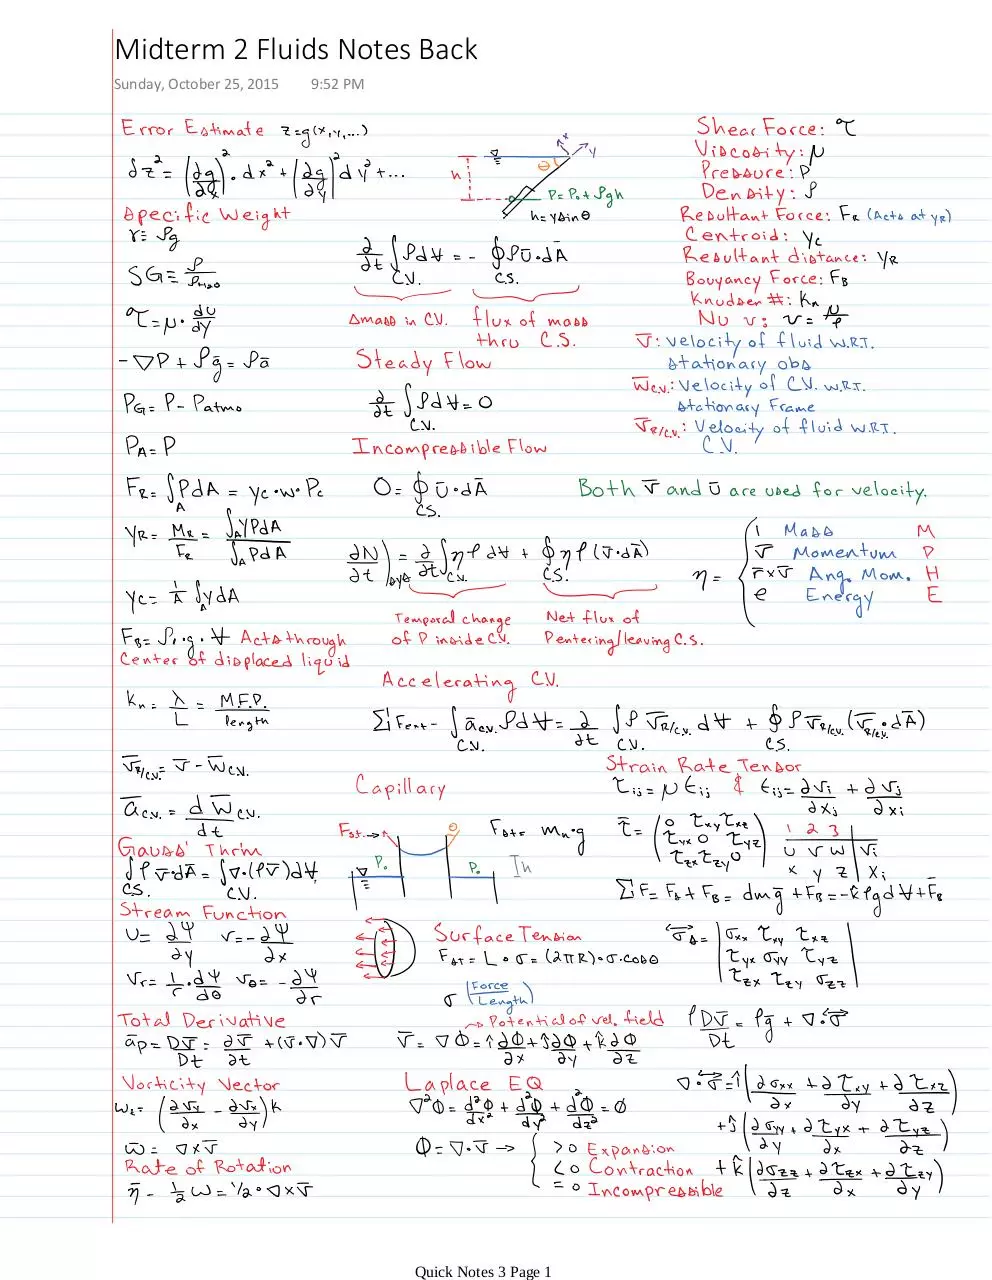 Midterm 2 Fluids Notes Back
Sunday, October 25, 2015 9:52 PM
Error Estimate z=g(x,y,...)
δz² = (∂g/∂x)² · dx² + (∂g/∂y)² dy² + ...
Specific Weight
γ≡ ρg
SG≡ ρ/ρH₂O
τ=μ· du/dy
-∇P + ρḡ = ρā
PG= P- Patmo
PA= P
FR= ∫A PdA = yc·w·Pc
yR= MR/FR = ∫A yPdA / ∫A PdA
yc= 1/A ∫A ydA
FB= ρf·g·V Acts through
Center of displaced liquid
kn= λ/L = M.F.P./length
v̄R/C.V.= v̄ - w̄C.V.
āC.V. = d w̄C.V./dt
Gauss' Thrm
∫C.S. ρv̄·dĀ = ∫C.V. ∇·(ρv̄)dV
Stream Function
u= ∂Ψ/∂y v=-∂Ψ/∂x
vr= 1/r · dΨ/dθ vθ= -∂Ψ/∂r
Total Derivative
āp= Dv̄/Dt = ∂v̄/∂t +(v̄·∇)v̄
Vorticity Vector
ωz= (∂vy/∂x - ∂vx/∂y)k
ω̄= ∇×v̄
Rate of Rotation
η̄ - ½ω = 1/2·∇×v̄
h
θ
x
y
P=P₀+ρgh
h=ysinθ
∂/∂t ∫C.V. ρdV = - ∮C.S. ρū·dĀ
Δmass in C.V. flux of mass
thru C.S.
Steady Flow
∂/∂t ∫C.V. ρdV=0
Incompressible Flow
0= ∮C.S. ū·dĀ
∂N/∂t)sys = ∂/∂t ∫C.V. ηρ dV + ∮C.S. ηρ(v̄·dĀ)
Temporal change Net flux of
of P inside C.V. P entering/leaving C.S.
Accelerating C.V.
ΣFext- ∫C.V. āC.V. ρdV = ∂/∂t ∫C.V. ρ v̄R/C.V. dV + ∮C.S. ρv̄R/C.V. (v̄R/C.V.·dĀ)
Capillary
Fst. θ
P₀ P₀ h
Fst= mn·g
Surface Tension
FST = L·σ = (2πR)·σ·cosθ
σ (Force/Length)
→ Potential of vel. field
v̄= ∇Φ= î∂Φ/∂x + ĵ∂Φ/∂y + k̂∂Φ/∂z
Laplace EQ
∇²Φ= d²Φ/dx² + d²Φ/dy² + d²Φ/dz² = 0
Φ= ∇·v̄ →
>0 Expansion
<0 Contraction
=0 Incompressible
Shear Force: τ
Viscosity: μ
Pressure: P
Density: ρ
Resultant Force: FR (Acts at yR)
Centroid: yc
Resultant distance: yR
Bouyancy Force: FB
Knudser #: Kn
Nu ν: ν= μ/ρ
v̄: velocity of fluid W.R.T.
stationary obs
w̄C.V.: Velocity of C.V. w.R.T.
stationary Frame
v̄R/C.V.: Velocity of fluid W.R.T.
C.V.
Both v̄ and ū are used for velocity.
η =
1 Mass M
v̄ Momentum P
r̄×v̄ Ang. Mom. H
e Energy E
Strain Rate Tensor
τij= μ ϵij & ϵij= ∂vi/∂xj + ∂vj/∂xi
τ̄= (0 τxy τxz
τyx 0 τyz
τzx τzy 0)
1 2 3
u v w vi
x y z xi
ΣF= Fs+FB= dmḡ +FB=-k̂ρgdV+F̄s
σs= |σxx τxy τxz|
|τyx σyy τyz|
|τzx τzy σzz|
ρDv̄/Dt = ρḡ + ∇·σ
∇·σ=î(∂σxx/∂x + ∂τxy/∂y + ∂τxz/∂z)
+ĵ(∂σyy/∂y + ∂τyx/∂x + ∂τyz/∂z)
+k̂(∂σzz/∂z + ∂τzx/∂x + ∂τzy/∂y)
Quick Notes 3 Page 1